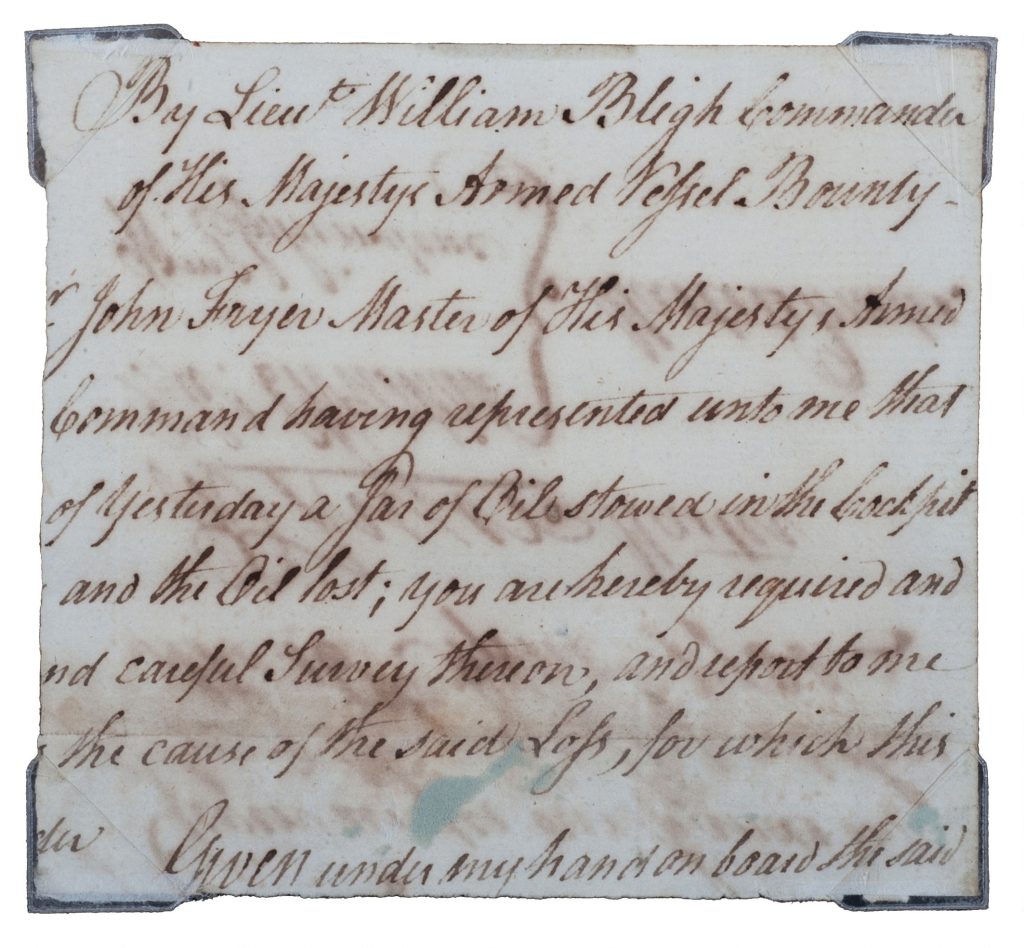 By Lieut William Bligh Commander
of His Majestys Armed Veſsel Bounty -
John Fryer Master of His Majestys Armed
Command having represented unto me that
of Yesterday a Jar of Oil stowed in the Cockpit
and the Oil lost; you are hereby required and
nd careful Survey thereon, and report to me
the cause of the said Loſs, for which this
der Given under my hand on board the said